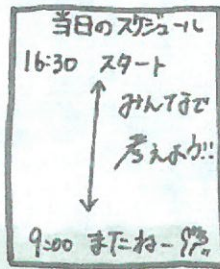 当日のスケジュール
16:30 スタート
みんなで
考えよう!!
9:00 またねー